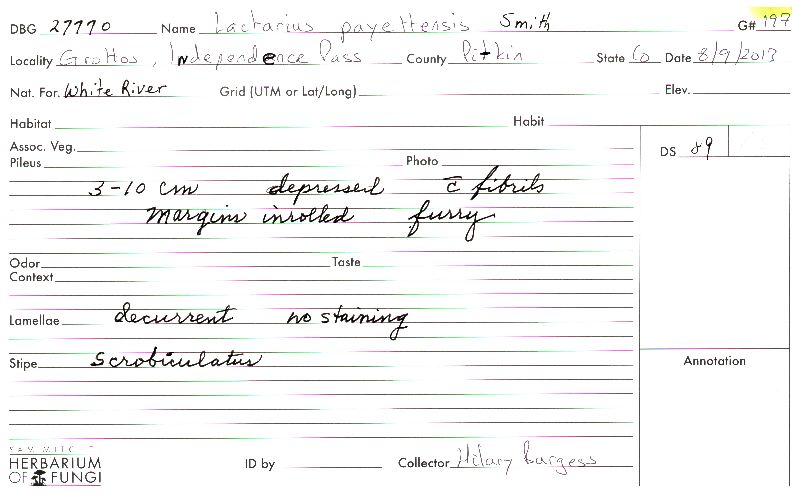 DBG 27770 Name Lactarius payettensis Smith G# 197
Locality Grottos, Independence Pass County Pitkin State Co Date 8/9/2013
Nat. For. White River Grid (UTM or Lat/Long) Elev.
Habitat Habit
Assoc. Veg. DS 89
Pileus Photo
3-10 cm depressed c̄ fibrils
Margins inrolled furry
Odor Taste
Context
Lamellae decurrent no staining
Stipe scrobiculatus Annotation
SAM MITCHEL
HERBARIUM
OF FUNGI
ID by Collector Hilary Burgess